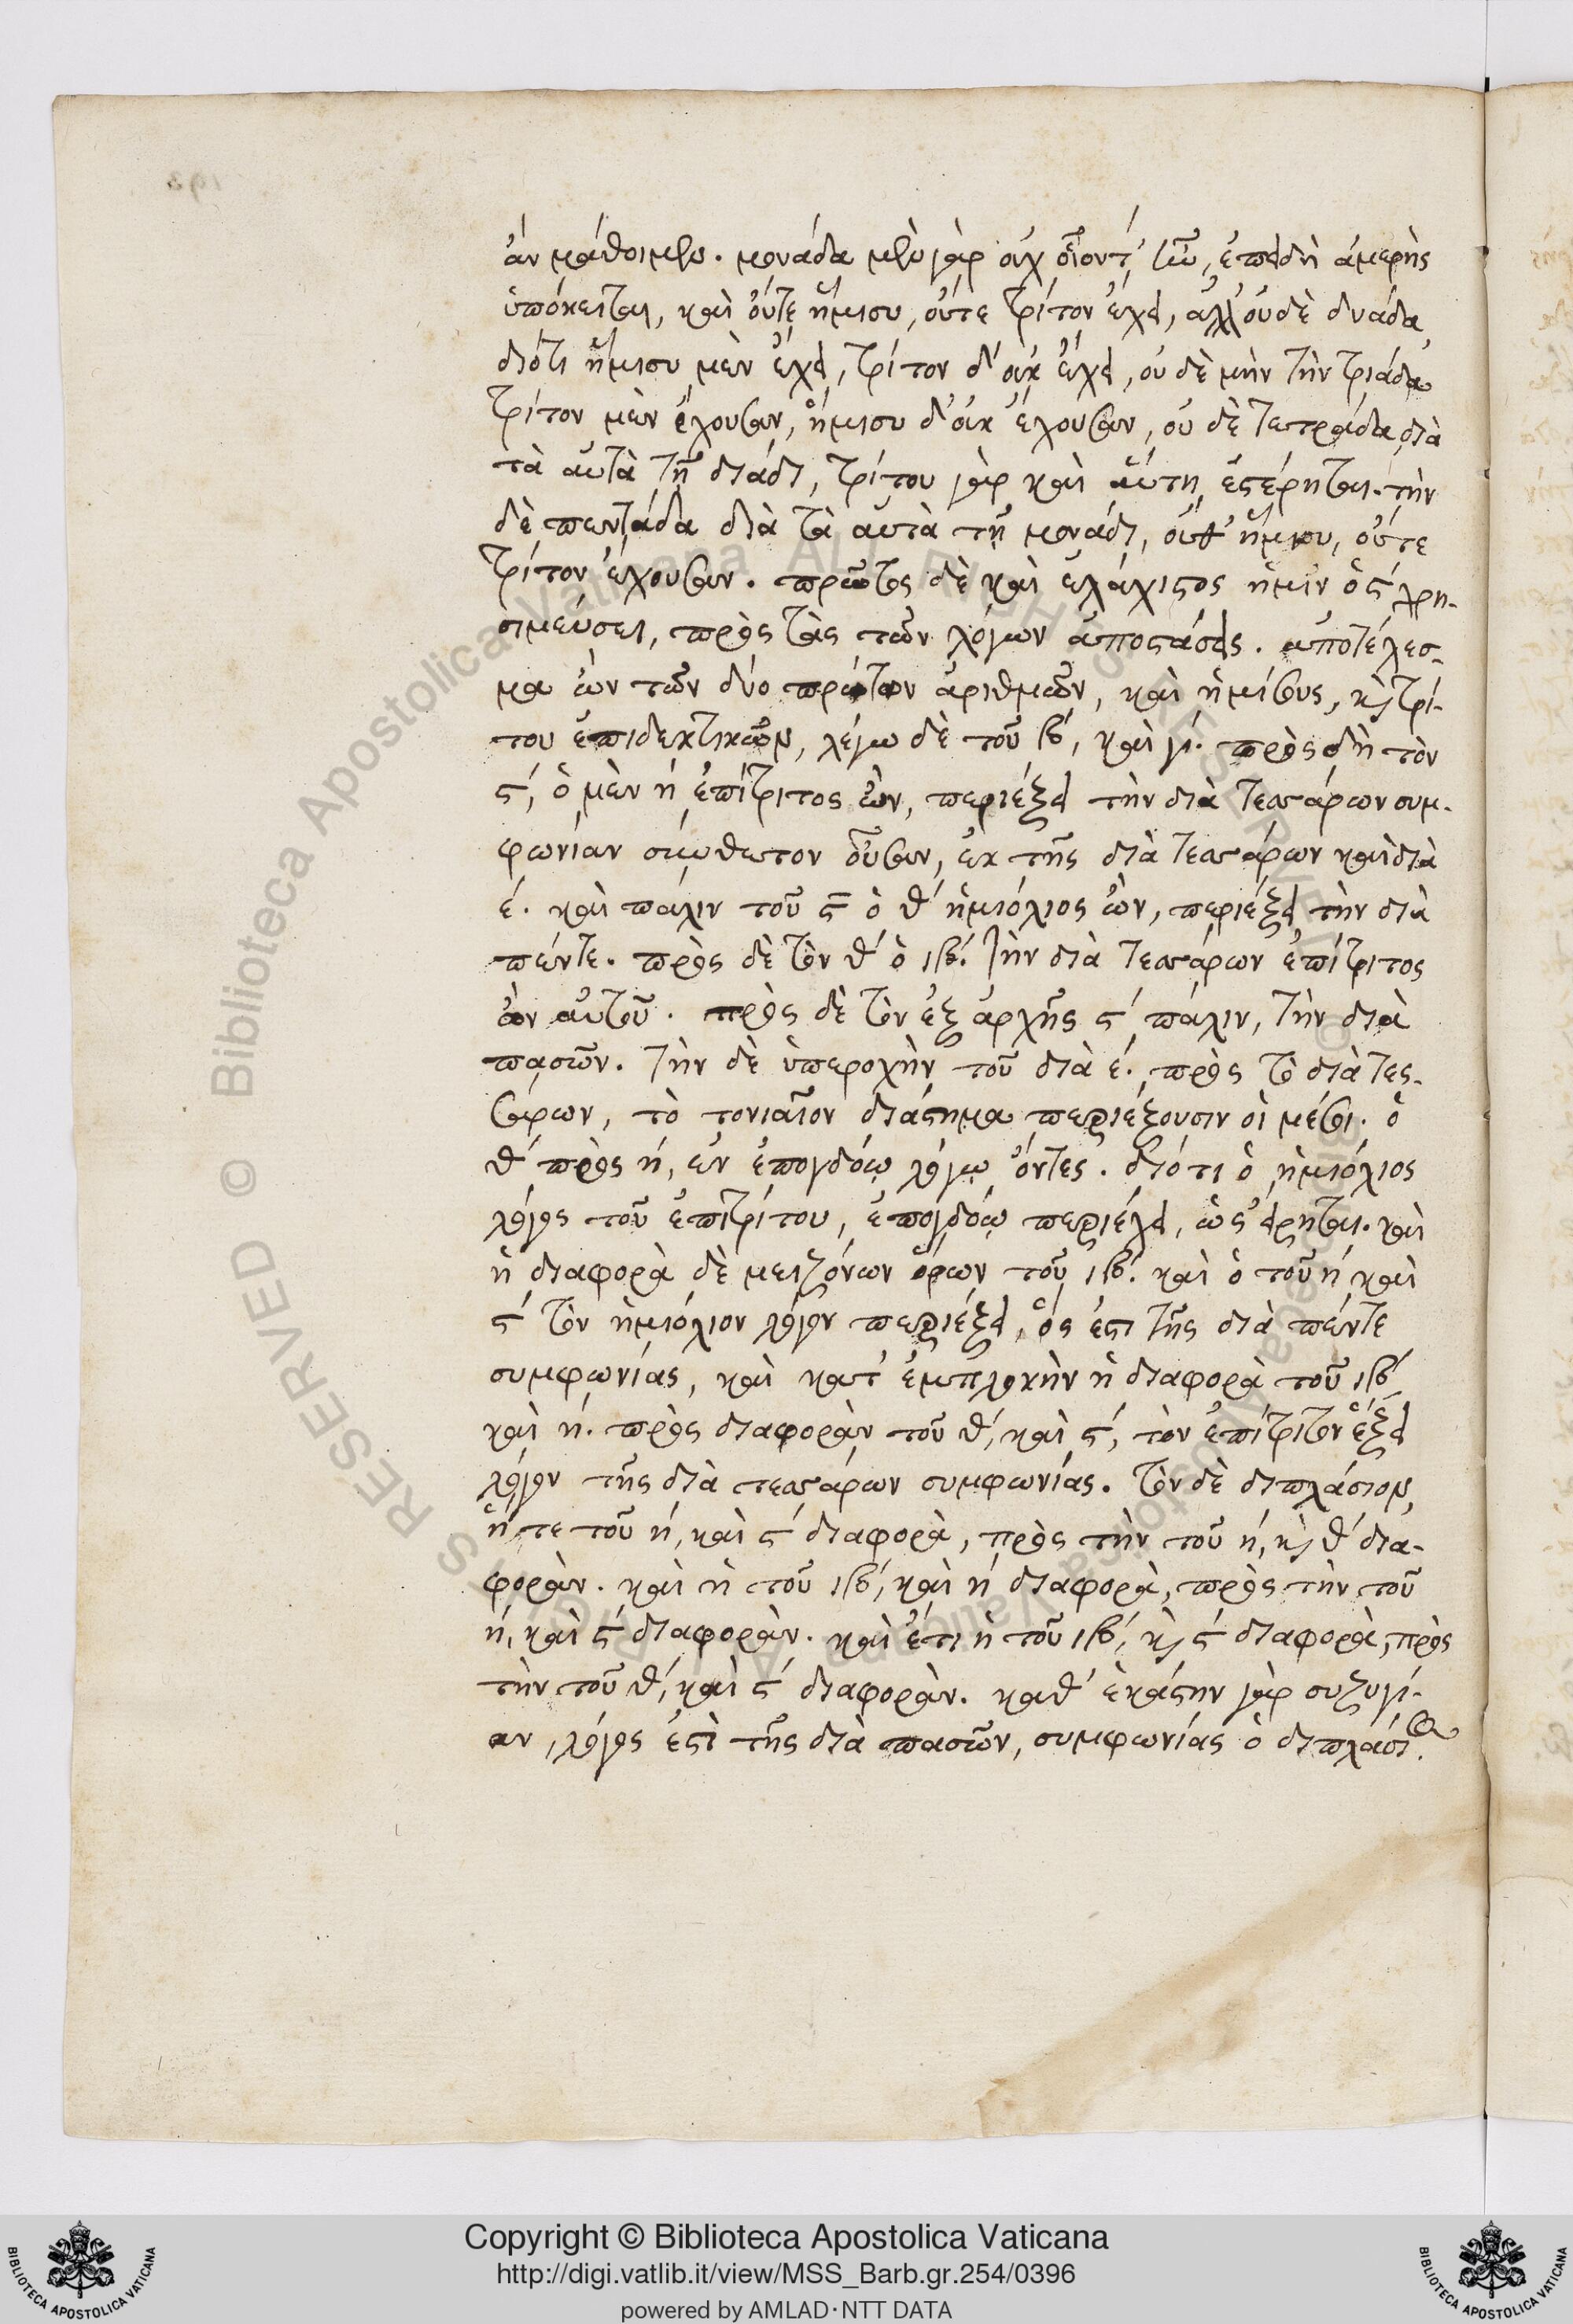 ἂν μάθοιμεν. μονάδα μὲν γὰρ οὐχ οἷόντ' ἦν, ἐπειδὴ ἀμερὴς
ὑπόκειται, καὶ οὔτε ἥμισυ, οὔτε τρίτον ἔχει, ἀλλ' οὐδὲ δυάδα,
διότι ἥμισυ μὲν ἔχει, τρίτον δ' οὐκ ἔχει, οὐδὲ μὴν τὴν τριάδα
τρίτον μὲν ἔχουσαν, ἥμισυ δ' οὐκ ἔχουσαν, οὐδὲ τετράδα, διὰ
τὰ αὐτὰ τῇ δυάδι, τρίτου γὰρ καὶ αὕτη ἐστέρηται. τὴν
δὲ πεντάδα διὰ τὰ αὐτὰ τῇ μονάδι, οὔθ' ἥμισυ, οὔτε
τρίτον ἔχουσαν. πρῶτος δὲ καὶ ἐλάχιστος ἡμῖν ὁ ϛ´ χρη-
σιμεύσει, πρὸς τὰς τῶν λόγων ἀποστάσεις. ἀποτέλεσ-
μα ὢν τῶν δύο πρώτων ἀριθμῶν, καὶ ἡμίσους, κὶ τρί-
του ἐπιδεκτικῶν, λέγω δὲ τοῦ β´, καὶ γ´. πρὸς δὴ τὸν
ϛ´, ὁ μὲν η´ ἐπίτριτος ὢν, περιέξει τὴν διὰ τεσσάρων συμ-
φωνίαν σύνθετον οὖσαν, ἐκ τῆς διὰ τεσσάρων καὶ διὰ
ε´. καὶ πάλιν τοῦ ϛ ὁ θ´ ἡμιόλιος ὢν, περιέξει τὴν διὰ
πέντε. πρὸς δὲ τὸν θ´ ὁ ιβ´. τὴν διὰ τεσσάρων ἐπίτριτος
ὢν αὐτοῦ. πρὸς δὲ τὸν ἐξ ἀρχῆς ϛ´ πάλιν, τὴν διὰ
πασῶν. τὴν δὲ ὑπεροχὴν τοῦ διὰ ε´. πρὸς τὸ διὰ τεσ-
σάρων, τὸ τονιαῖον διάστημα περιέξουσιν οἱ μέσοι. ὁ
θ´ πρὸς η´, ἐν ἐπογδόῳ λόγῳ ὄντες. διότι ὁ ἡμιόλιος
λόγος τοῦ ἐπιτρίτου, ἐπογδόῳ περιέχει, ὡς εἴρηται. καὶ
ἡ διαφορὰ δὲ μειζόνων ὅρων τοῦ ιβ´. καὶ ὁ τοῦ η´ καὶ
ϛ´ τὸν ἡμιόλιον λόγον περιέξει, ὅς ἐστι τῆς διὰ πέντε
συμφωνίας, καὶ κατ' ἐμπλοκὴν ἡ διαφορὰ τοῦ ιβ´
καὶ η´. πρὸς διαφορὰν τοῦ θ´, καὶ ϛ´, τὸν ἐπίτριτον ἕξει
λόγον τῆς διὰ τεσσάρων συμφωνίας. τὸν δὲ διπλάσιον,
ἥ τε τοῦ η´, καὶ ϛ´ διαφορὰ, πρὸς τὴν τοῦ η´, κὶ θ´ δια-
φοράν. καὶ ἡ τοῦ ιβ´, καὶ η´ διαφορὰ, πρὸς τὴν τοῦ
η´, καὶ ϛ´ διαφοράν. καὶ ἔτι ἡ τοῦ ιβ´, κὶ ϛ´ διαφορὰ, πρὸς
τὴν τοῦ θ´, καὶ ϛ´ διαφοράν. καθ' ἑκάστην γὰρ συζυγί-
αν, λόγος ἐστὶ τῆς διὰ πασῶν, συμφωνίας ὁ διπλάσιος.
Copyright © Biblioteca Apostolica Vaticana
http://digi.vatlib.it/view/MSS_Barb.gr.254/0396
powered by AMLAD·NTT DATA